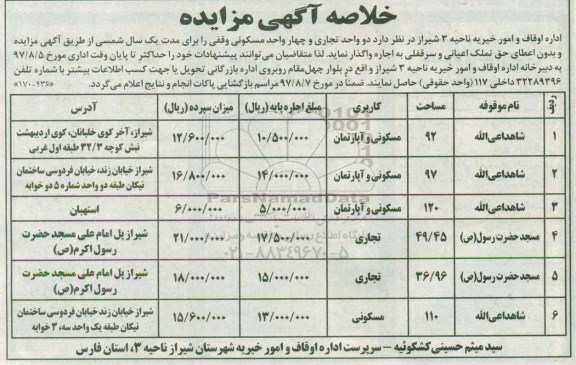 خلاصه آگهی مزایده
اداره اوقاف و امور خیریه ناحیه ۳ شیراز در نظر دارد دو واحد تجاری و چهار واحد مسکونی وقفی را برای مدت یک سال شمسی از طریق آگهی مزایده
و بدون اعطای حق تملک اعیانی و سرقفلی به اجاره واگذار نماید. لذا متقاضیان می‌توانند پیشنهادات خود را حداکثر تا پایان وقت اداری مورخ ۹۷/۸/۵
به دبیرخانه اداره اوقاف و امور خیریه ناحیه ۳ شیراز و اقع در بلوار چهل‌مقام روبروی اداره بازرگانی تحویل یا جهت کسب اطلاعات بیشتر با شماره تلفن
۳۲۲۸۹۳۹۶ داخلی ۱۱۷ (واحد حقوقی) حاصل نمایند. ضمناً در مورخ ۹۷/۸/۷ مراسم بازگشایی پاکات انجام و نتایج اعلام می‌گردد. «۱۷۰-۴۳۶»
ردیف نام موقوفه مساحت کاربری مبلغ اجاره پایه (ریال) میزان سپرده (ریال) آدرس
۱ شاهداعی‌الله ۹۲ مسکونی و آپارتمان ۱۰/۵۰۰/۰۰۰ ۱۲/۶۰۰/۰۰۰ شیراز، آخر کوی خلبانان، کوی اردیبهشت
نبش کوچه ۳۲/۳ طبقه اول غربی
۲ شاهداعی‌الله ۹۷ مسکونی و آپارتمان ۱۴/۰۰۰/۰۰۰ ۱۶/۸۰۰/۰۰۰ شیراز خیابان زند، خیابان فردوسی ساختمان
نیکان طبقه دو واحد شماره ۵ دو خوابه
۳ شاهداعی‌الله ۱۲۰ مسکونی و آپارتمان ۵/۰۰۰/۰۰۰ ۶/۰۰۰/۰۰۰ استهبان
۴ مسجد حضرت رسول(ص) ۴۹/۴۵ تجاری ۱۷/۵۰۰/۰۰۰ ۲۱/۰۰۰/۰۰۰ شیراز پل امام علی مسجد حضرت
رسول اکرم(ص)
۵ مسجد حضرت رسول(ص) ۳۶/۹۶ تجاری ۱۵/۰۰۰/۰۰۰ ۱۸/۰۰۰/۰۰۰ شیراز پل امام علی مسجد حضرت
رسول اکرم(ص)
۶ شاهداعی‌الله ۱۱۰ مسکونی ۱۳/۰۰۰/۰۰۰ ۱۵/۶۰۰/۰۰۰ شیراز خیابان زند خیابان فردوسی ساختمان
نیکان طبقه یک واحد سه، ۳ خوابه
ParsNamadData
۰۲۱-۸۸۳۴۹۶۷۰-۵
سید میثم حسینی کشکوئیه - سرپرست اداره اوقاف و امور خیریه شهرستان شیراز ناحیه ۳، استان فارس